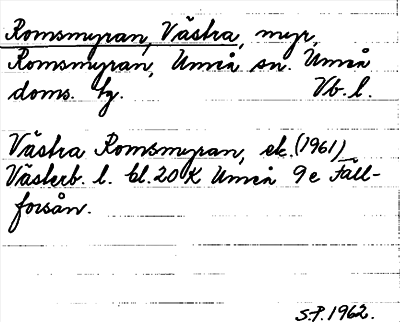 Romsmyran, Västra, myr,
Romsmyran, Umeå sn. Umeå
doms. tg. Vb. l.
Västra Romsmyran, ek. (1961)
Västerb. l. bl. 20 K Umeå 9 e Fäll-
forsån.
S.P. 1962.